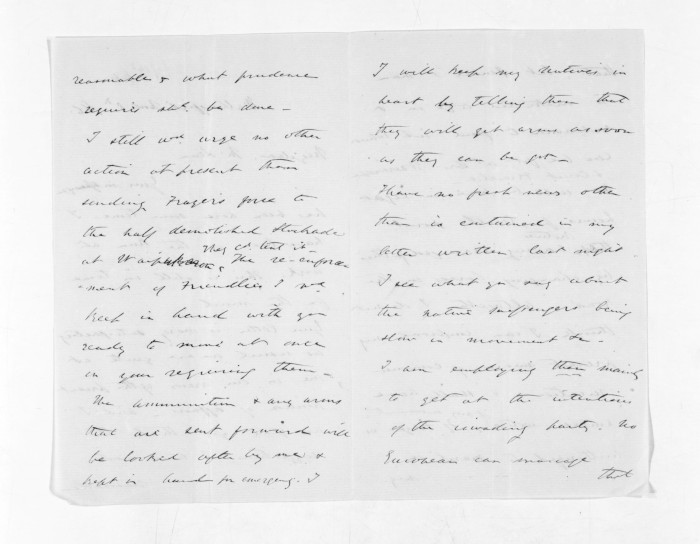 reasonable & what prudence
requires shd. be done -
I still wd. urge no other
action at present than
sending Fraser's force to
the half demolished stockade
They cd. tent it -
at The re-enforce
-ment of Friendlies I wd.
keep in hand with you
ready to move at once
in your requiring them -
The ammunition & any arms
that are sent forward will
be looked after by me &
kept in hand for emergency. I
I will keep my Natives in
heart by telling them that
they will get arms as soon
as they can be got -
I have no fresh news other
than is contained in my
letter written last night.
I see what you say about
the native messengers being
slow in movement &c -
I am employing them mainly
to get at the intentions
of the invading party. No
European can manage
that